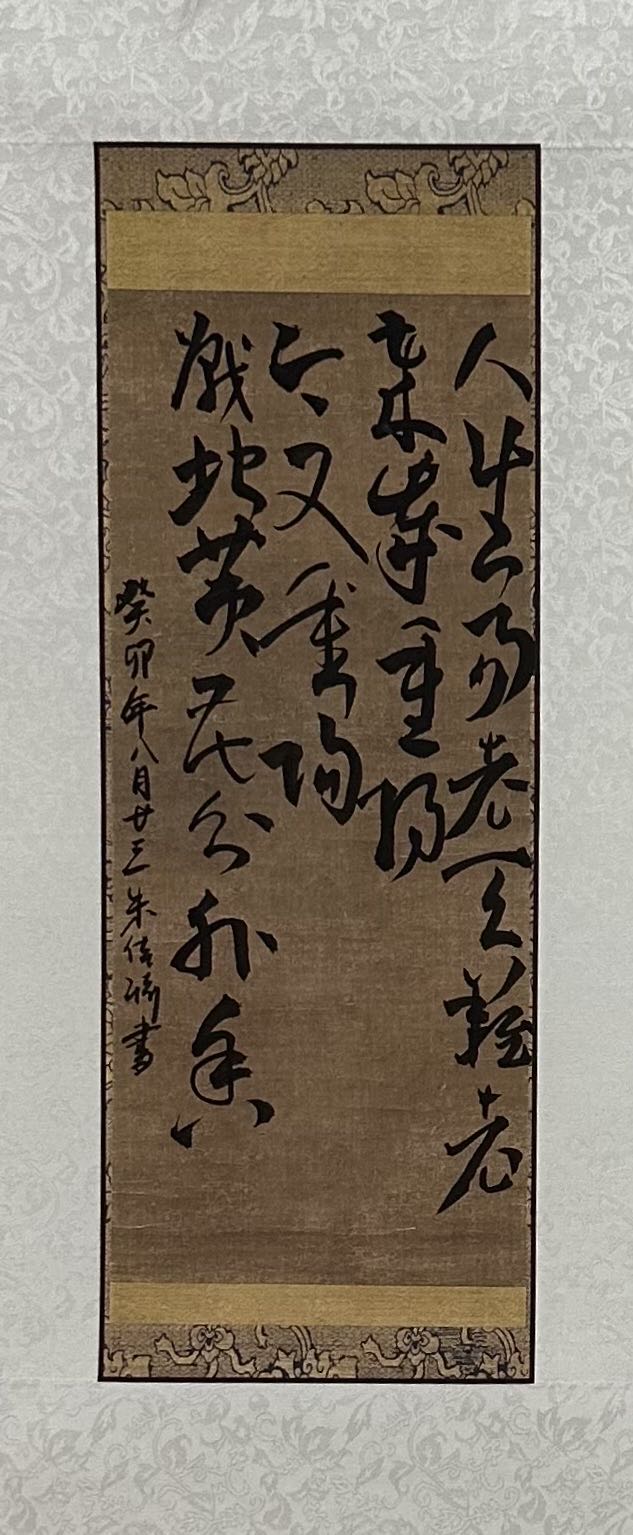 人生易老天難老
歲歲重陽
今又重陽
戰地黃花分外香
癸卯年八月廿三朱書